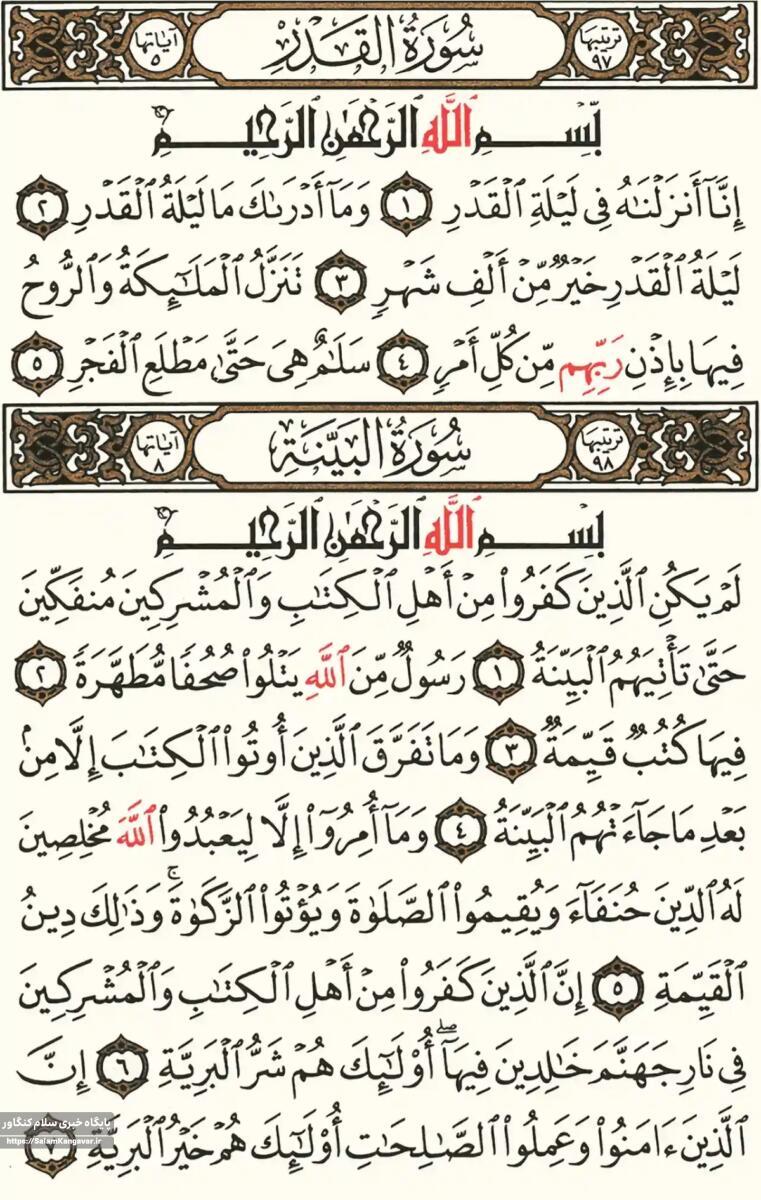 ترتيبها ٩٧ سُورَةُ القَدْرِ آياتها ٥
بِّسْمِ ٱللَّهِ ٱلرَّحْمَٰنِ ٱلرَّحِيمِ
إِنَّآ أَنزَلْنَٰهُ فِى لَيْلَةِ ٱلْقَدْرِ ١ وَمَآ أَدْرَىٰكَ مَا لَيْلَةُ ٱلْقَدْرِ ٢
لَيْلَةُ ٱلْقَدْرِ خَيْرٌ مِّنْ أَلْفِ شَهْرٍ ٣ تَنَزَّلُ ٱلْمَلَٰٓئِكَةُ وَٱلرُّوحُ
فِيهَا بِإِذْنِ رَبِّهِم مِّن كُلِّ أَمْرٍ ٤ سَلَٰمٌ هِىَ حَتَّىٰ مَطْلَعِ ٱلْفَجْرِ ٥
ترتيبها ٩٨ سُورَةُ البَيِّنَةِ آياتها ٨
بِسْمِ ٱللَّهِ ٱلرَّحْمَٰنِ ٱلرَّحِيمِ
لَمْ يَكُنِ ٱلَّذِينَ كَفَرُوا۟ مِنْ أَهْلِ ٱلْكِتَٰبِ وَٱلْمُشْرِكِينَ مُنفَكِّينَ
حَتَّىٰ تَأْتِيَهُمُ ٱلْبَيِّنَةُ ١ رَسُولٌ مِّنَ ٱللَّهِ يَتْلُوا۟ صُحُفًا مُّطَهَّرَةً ٢
فِيهَا كُتُبٌ قَيِّمَةٌ ٣ وَمَا تَفَرَّقَ ٱلَّذِينَ أُوتُوا۟ ٱلْكِتَٰبَ إِلَّا مِنۢ
بَعْدِ مَا جَآءَتْهُمُ ٱلْبَيِّنَةُ ٤ وَمَآ أُمِرُوٓا۟ إِلَّا لِيَعْبُدُوا۟ ٱللَّهَ مُخْلِصِينَ
لَهُ ٱلدِّينَ حُنَفَآءَ وَيُقِيمُوا۟ ٱلصَّلَوٰةَ وَيُؤْتُوا۟ ٱلزَّكَوٰةَ ۚ وَذَٰلِكَ دِينُ
ٱلْقَيِّمَةِ ٥ إِنَّ ٱلَّذِينَ كَفَرُوا۟ مِنْ أَهْلِ ٱلْكِتَٰبِ وَٱلْمُشْرِكِينَ
فِى نَارِ جَهَنَّمَ خَٰلِدِينَ فِيهَآ ۖ أُو۟لَٰٓئِكَ هُمْ شَرُّ ٱلْبَرِيَّةِ ٦ إِنَّ
ٱلَّذِينَ ءَامَنُوا۟ وَعَمِلُوا۟ ٱلصَّٰلِحَٰتِ أُو۟لَٰٓئِكَ هُمْ خَيْرُ ٱلْبَرِيَّةِ ٧
پایگاه خبری سلام کنگاور
https://SalamKangavar.ir